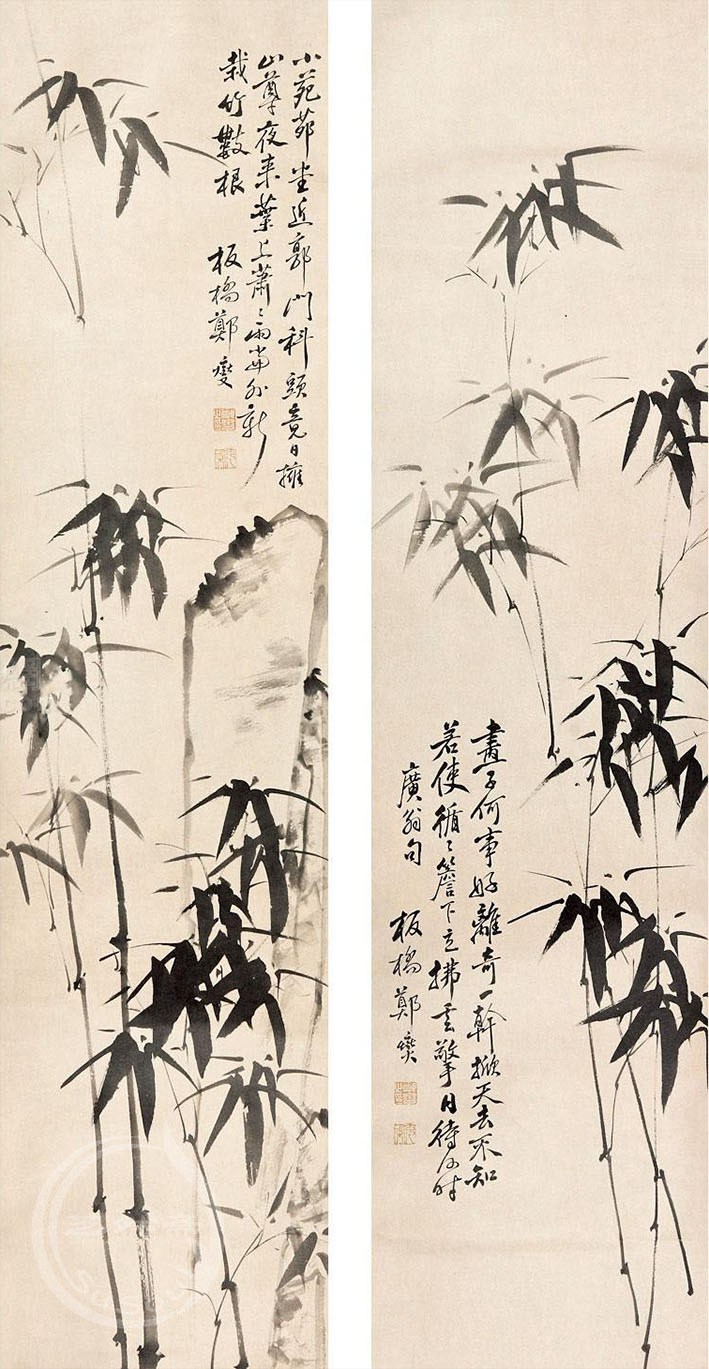 畫工何事好離奇一幹掀天去不知
若使循〻簷下立拂雲擎日待何時
廣翁句
板橋鄭燮
小苑茆堂近郭門科頭竟日擁
山尊夜来葉上蕭〻雨窗外新
栽竹數根
板橋鄭燮